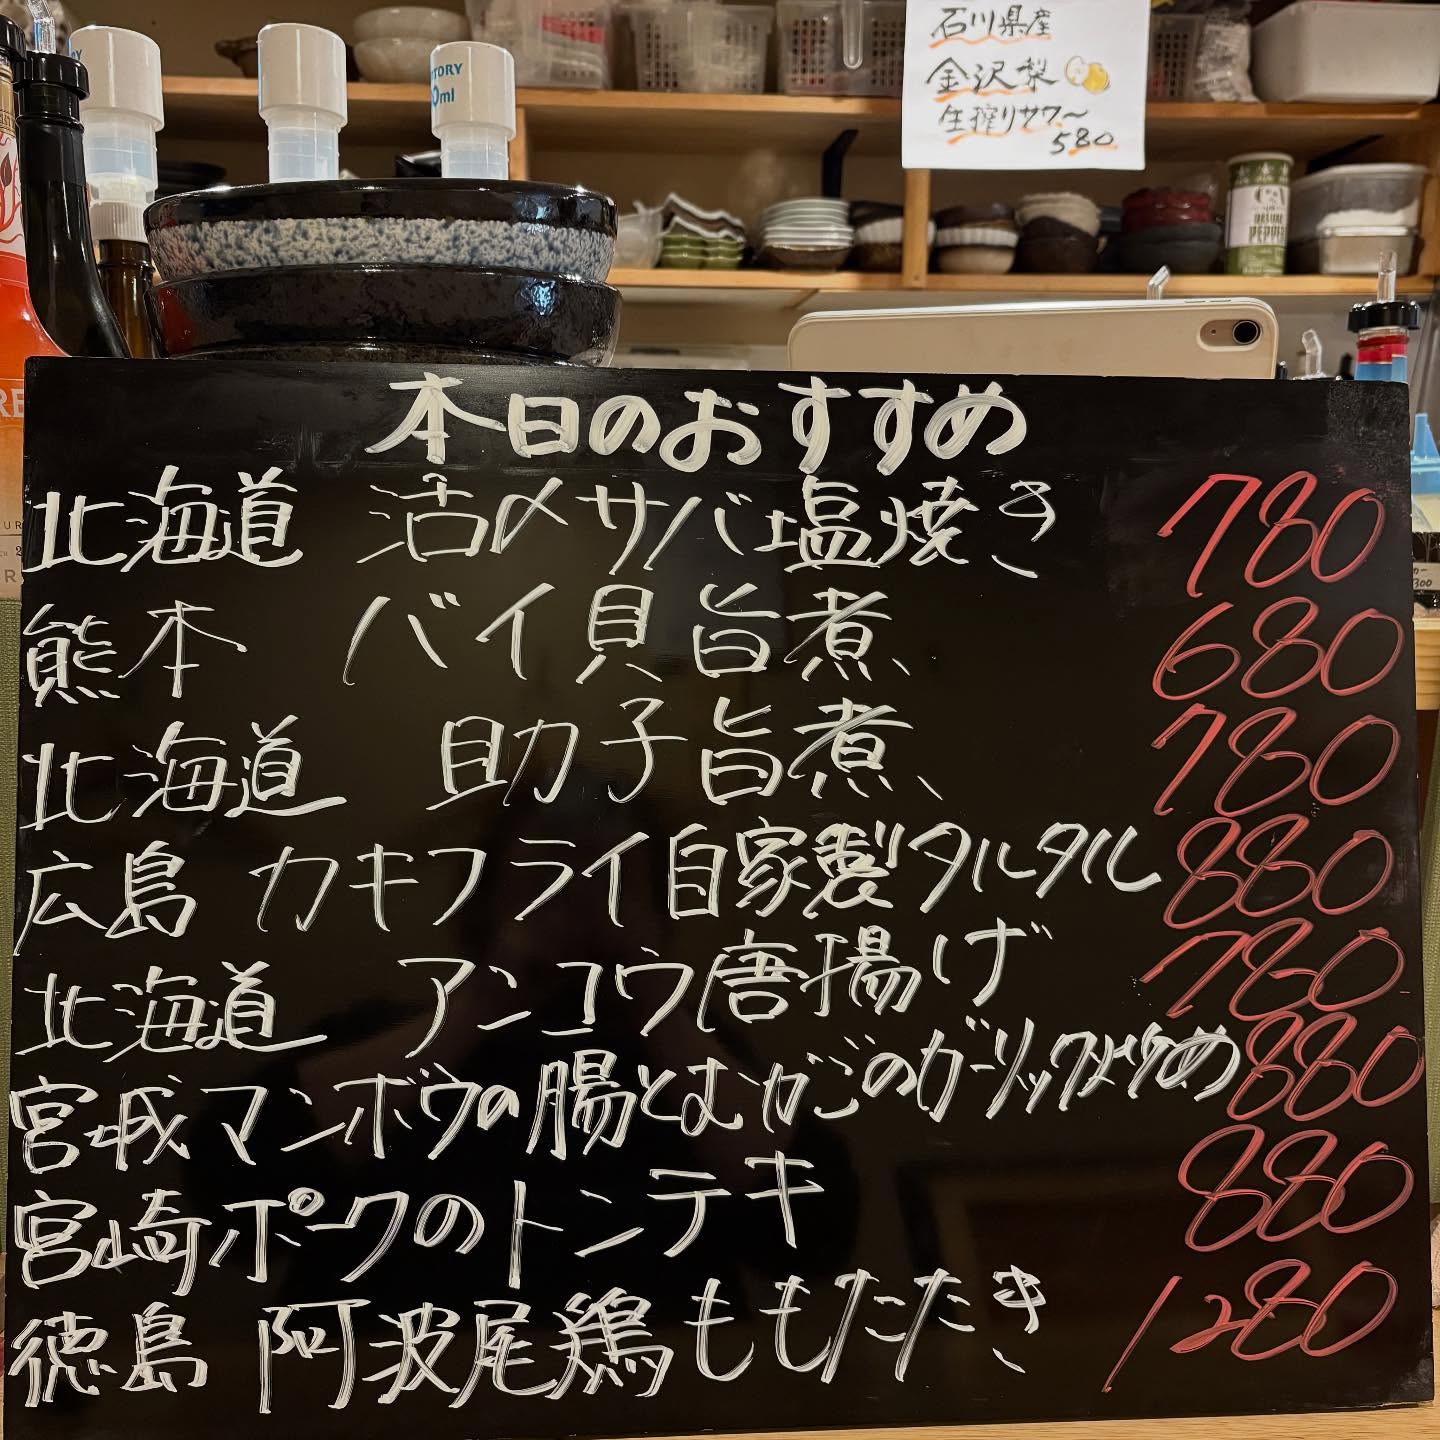 石川県産
金沢梨
生搾りサワー
580
TORY
0ml
本日のおすすめ
北海道 活〆サバ塩焼き 780
熊本 バイ貝旨煮 680
北海道 助子旨煮 780
広島 カキフライ自家製タルタル 880
北海道 アンコウ唐揚げ 780
宮城マンボウの腸とむかごのガーリック炒め 880
宮崎ポークのトンテキ 880
徳島 阿波尾鶏ももたたき 1280